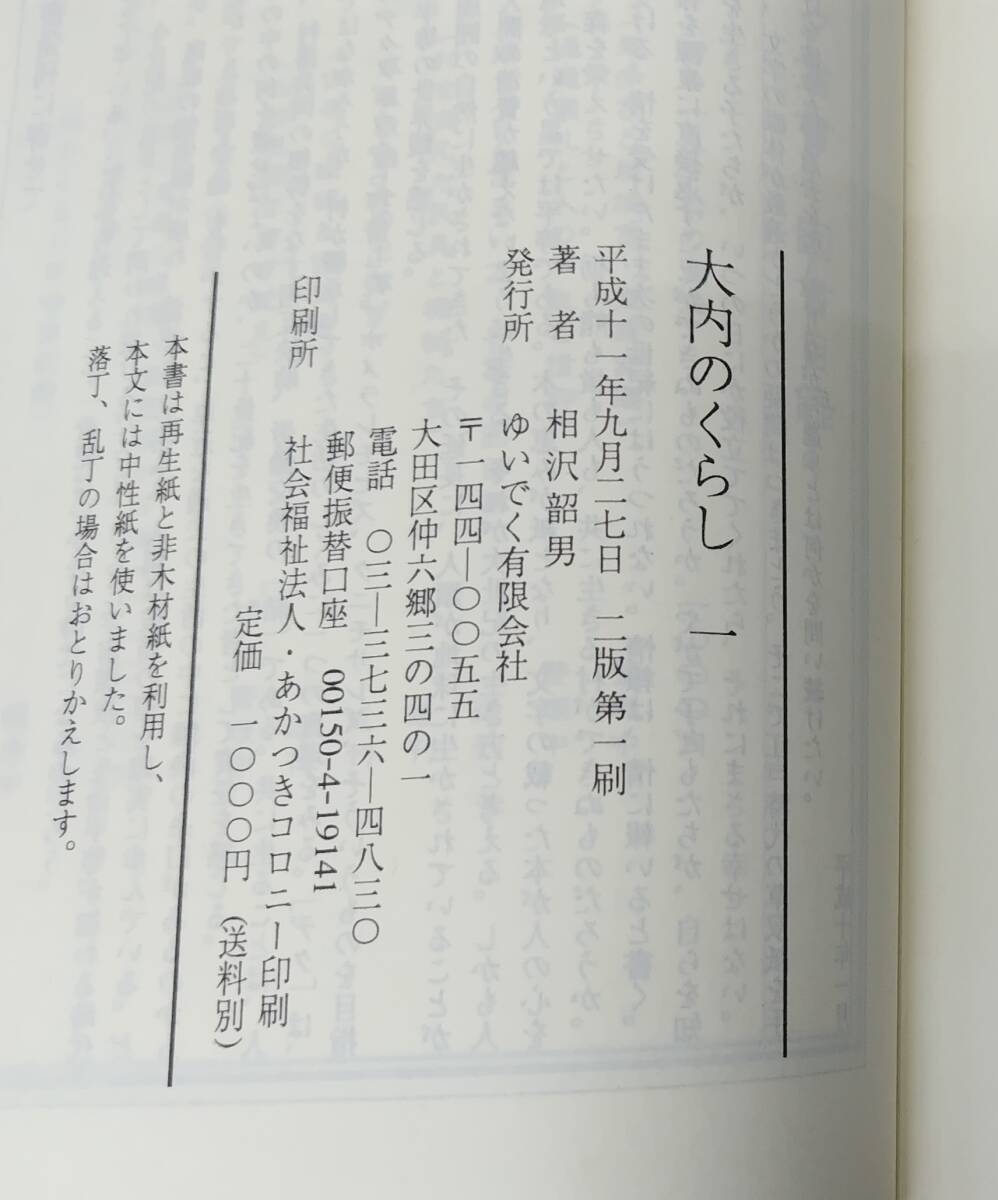 大内のくらし 一
平成十一年九月二七日 二版第一刷
著者 相沢韶男
発行所 ゆいでく有限会社
〒一四四―〇〇五五
大田区仲六郷三の四の一
電話 〇三―三七三六―四八三〇
郵便振替口座 00150-4-19141
印刷所 社会福祉法人・あかつきコロニー印刷
定価 一〇〇〇円(送料別)
本書は再生紙と非木材紙を利用し、
本文には中性紙を使いました。
落丁、乱丁の場合はおとりかえします。